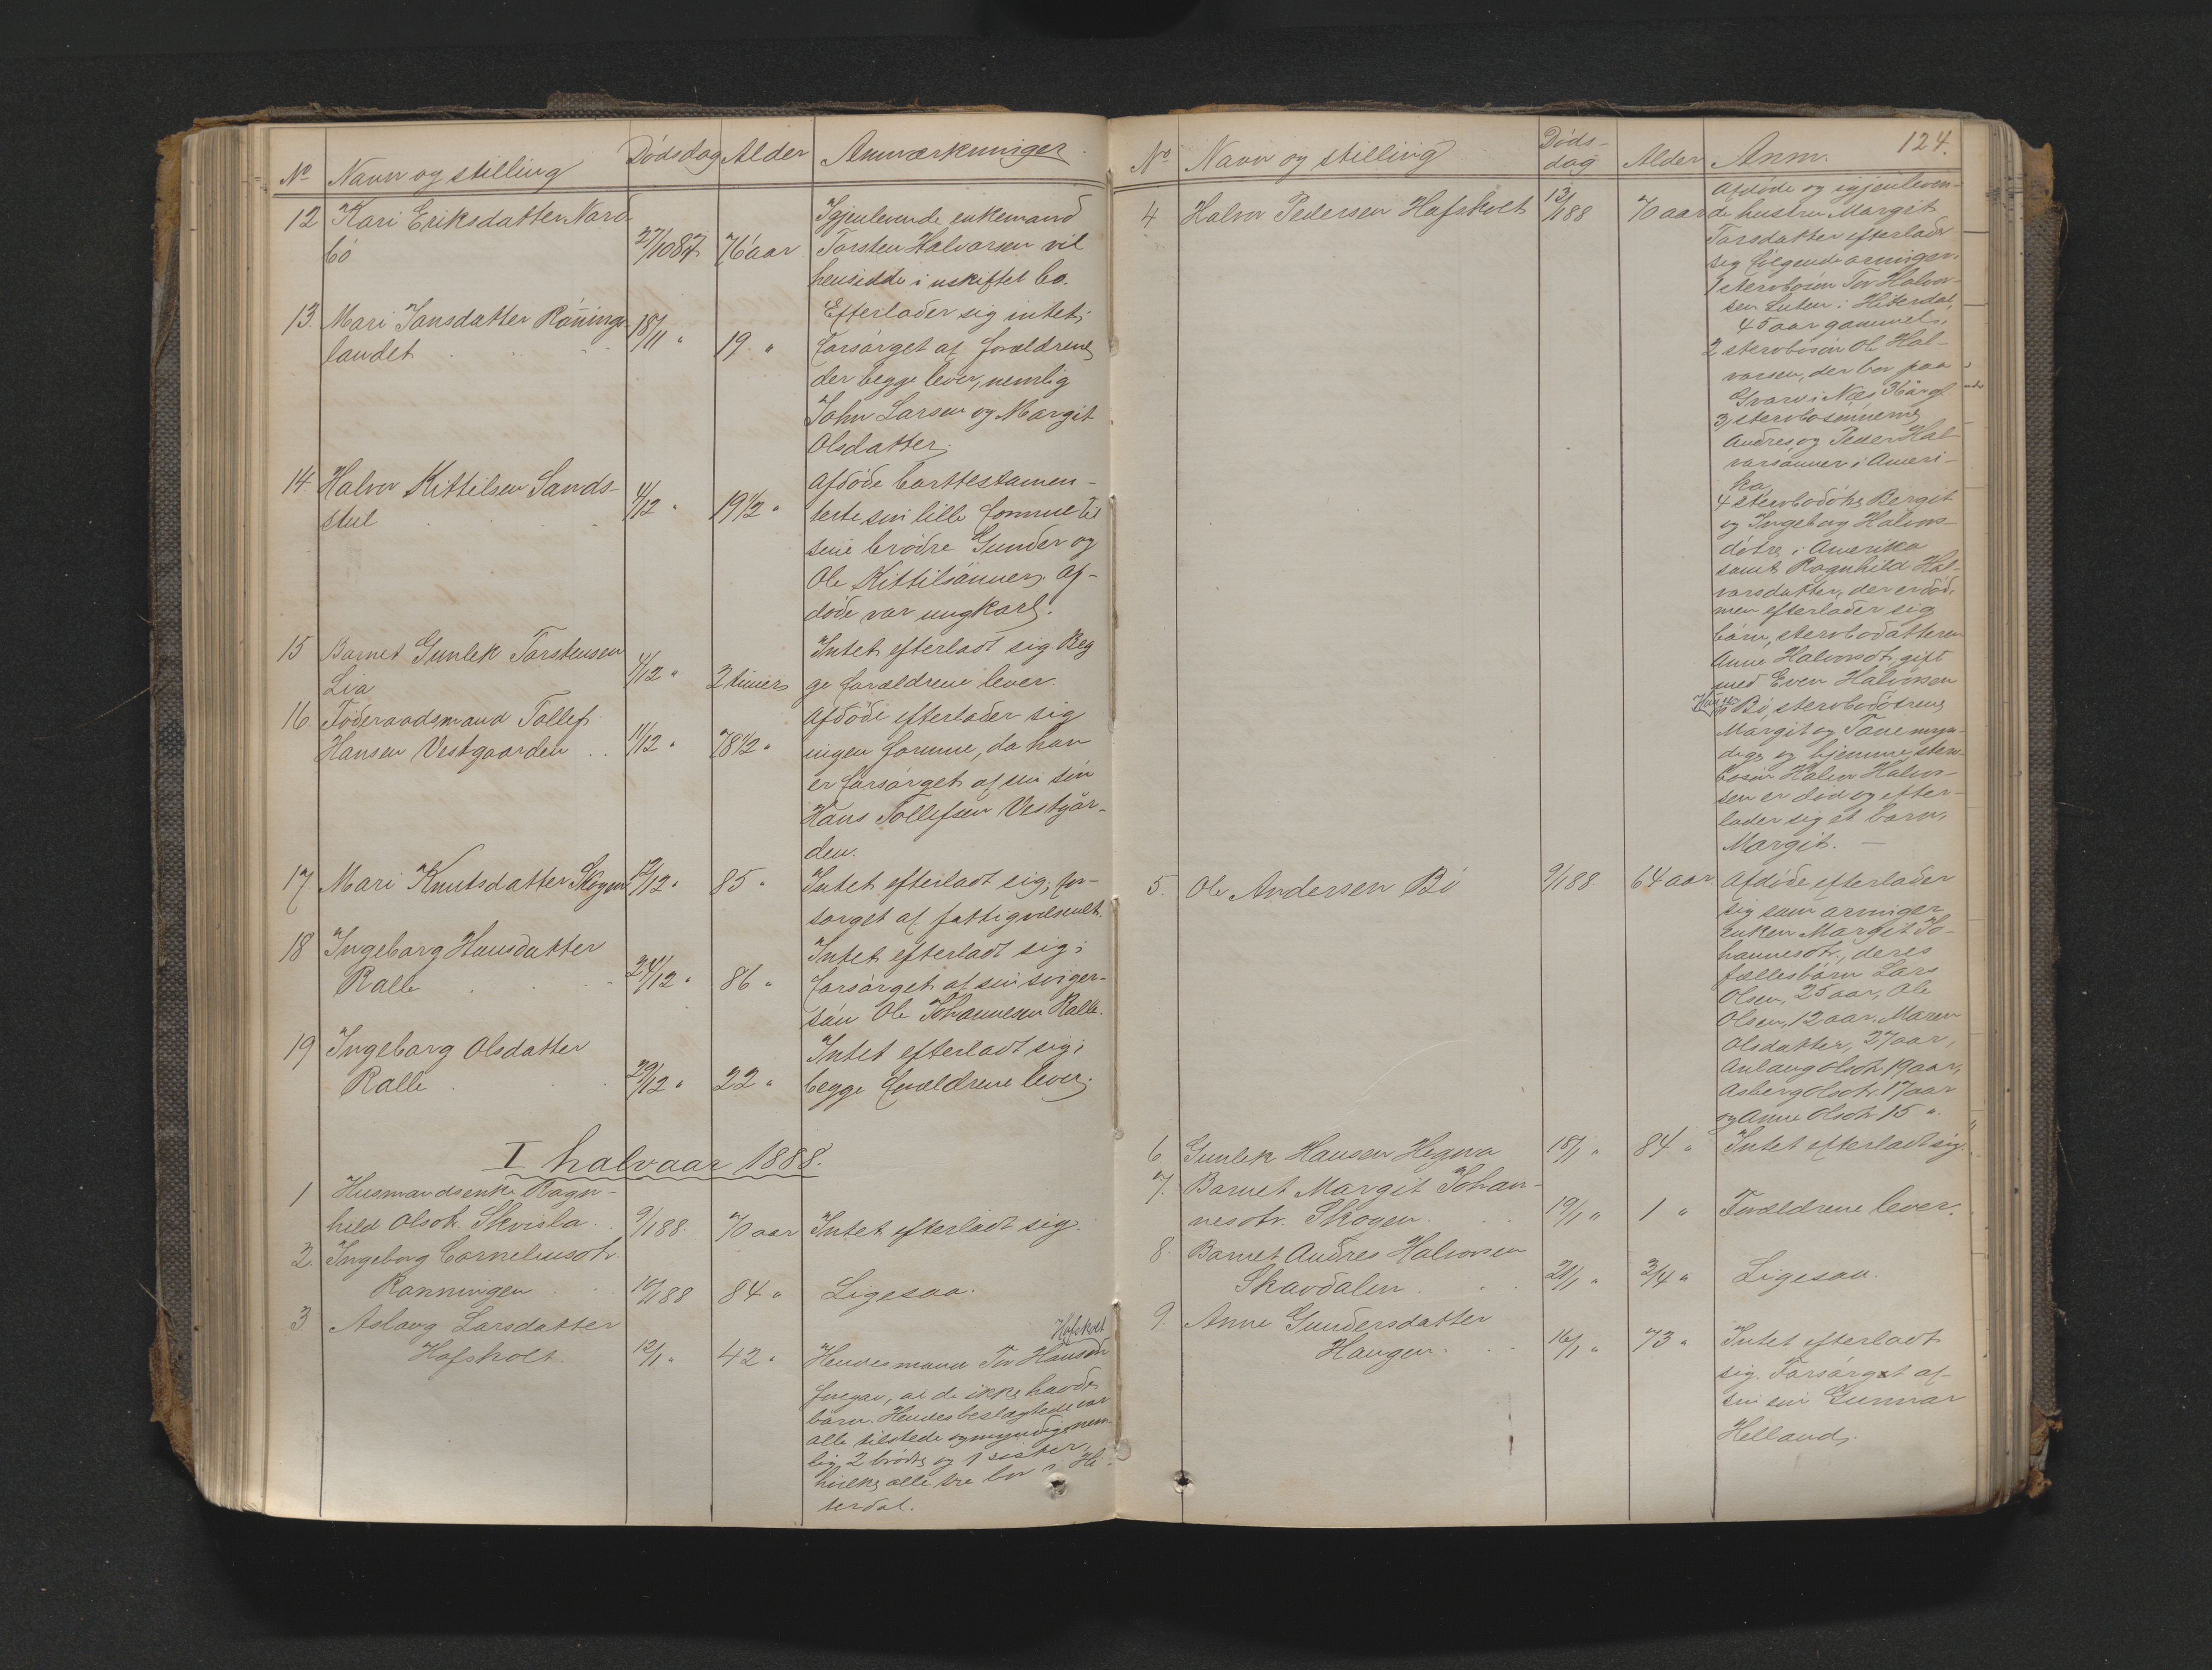 No Navn og stilling Dødsdag Alder Anmærkninger
12 Kari Eriksdatter Nord-
bø 27/10 87 76 aar
Igjenlevende enkemand
Torsten Halvorsen vil
hensidde i uskiftet bo.
13. Mari Jonsdatter Rønnings-
landet 18/11 " 19 "
Efterlader sig intet;
forsørget af forældrene
der begge lever, nemlig
John Larsen og Margit
Olsdatter.
14 Halvor Kittilsen Sands-
stul 4/12 " 19 1/2 "
Afdøde borttestamen-
terte sin lille formue til
sine brødre Gunder og
Ole Kittilsønner. Af-
døde var ungkarl.
15 Barnet Gunlek Torstensen
Lia 4/12 " 2 timer
Intet efterladt sig. Beg
ge forældrene lever.
16. Føderaadsmand Tollef
Hansen Vestgaarden 11/12 " 78 1/2 "
Afdøde efterlader sig
ingen formue, da han
er forsørget af sin søn
Hans Tollefsen Vestgår-
den.
17 Mari Knutsdatter Skogen 12/12 " 85 "
Intet efterladt sig; for-
sørget af fattigvæsenet.
18 Ingeborg Hansdatter
Ralle 24/12 " 86 "
Intet efterladt sig;
forsørget af sin sviger-
søn Ole Johannesen Ralle.
19 Ingeborg Olsdatter
Ralle 29/12 " 22 "
Intet efterladt sig;
begge forældrene lever.
I halvaar 1888.
1 Husmandsenke Ragn-
hild Olsdt. Skvisla 9/1 88 70 aar Intet efterladt sig.
2. Ingeborg Corneliusdtr.
Rønningen 10/1 88 84 " Ligesaa.
3 Aslaug Larsdatter
Hofsholt 12/1 " 42 "
Hofsholt
Hendes mand Tor Hansen
foregav, at de ikke havde
børn. Hendes beslægtede var
alle tilstede og myndige nem-
lig 2 brødre og 1 søster,
hvilke alle tre bor i Hi-
terdal.
124.
No Navn og stilling Døds-
dag Alder Anm.
4 Halvor Pedersen Hafsholt 13/1 88 70 aar
Afdøde og igjenleven-
de hustru Margit
Torsdatter efterlader
sig følgende arvinger.
1 stervbosøn Tor Halvor-
sen i Hiterdal,
45 aar gammel,
2 stervbosøn Ole Hal-
vorsen, der bor paa
Gvarv i Næs 36 år gl
3, stervbosønnerne
Andres og Peder Hal
vorsønner i Ameri-
ka,
4 stervbodøtre Bergit
og Ingeborg Halvors-
døtre i Amerika
samt Ragnhild Hal-
vorsdatter, der er død,
men efterlader sig
børn, stervbodatteren
Anne Halvorsdt. gift
med Even Halvorsen
Bø, stervbodøtrene
Margit og Tone myn-
dige og hjemme, sterv-
bosøn Halvor Halvor-
sen er død og efter-
lader sig et barn,
Margit. —
5. Ole Andersen Bø 9/1 88 64 aar
Afdøde efterlader
sig som arvinger
enken Margit Jo-
hannesdtr., deres
fællesbørn Lars
Olsen, 25 aar, Ole
Olsen, 12 aar. Maren
Olsdatter, 27 aar,
Anlaug Olsdt. 19 aar,
Asberg Olsdtr. 17 aar
og Anne Olsdtr. 15 "
6 Gunlek Hansen Hegna 18/1 " 84 " Intet efterladt sig.
7. Barnet Margit Johan-
nesdtr. Skogen. 19/1 " 1 " Forældrene lever.
8. Barnet Andres Halvorsen
Skavdalen 21/1 " 3/4 " Ligesaa.
9. Anne Gundersdatter
Haugen 16/1 " 73 "
Intet efterladt
sig. Forsørget af
sin søn Gunnar
Helland.